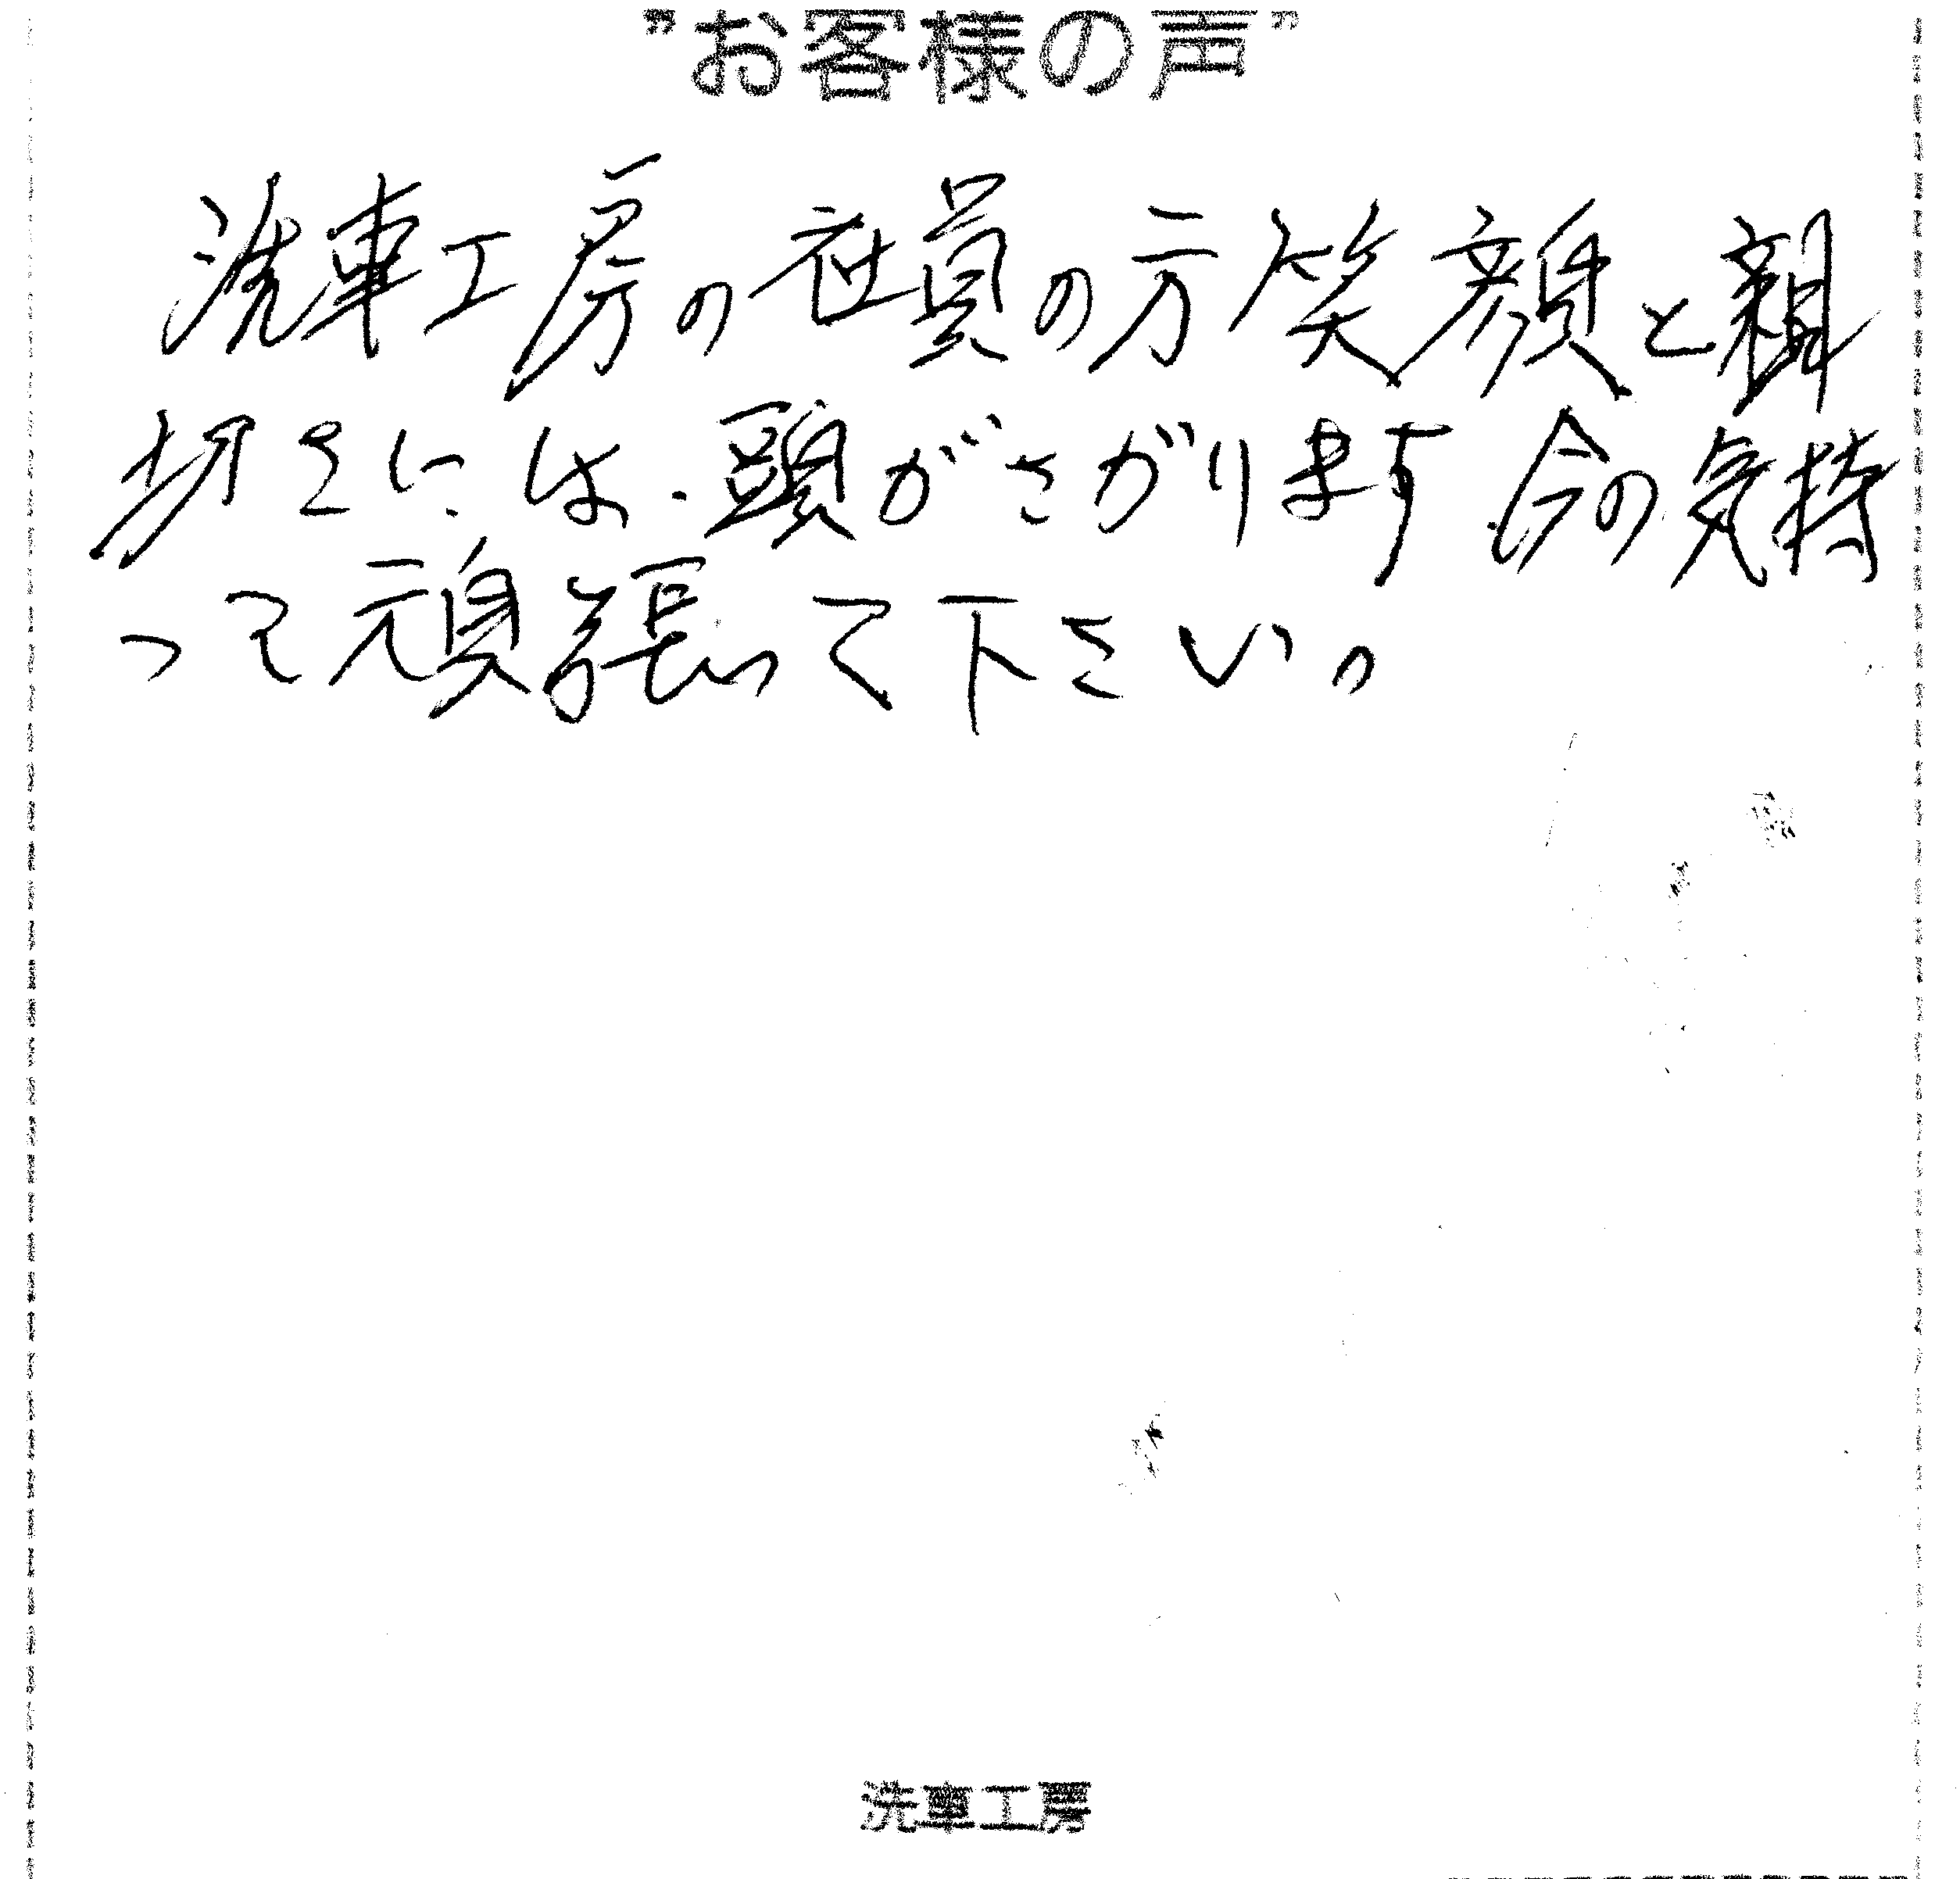 "お客様の声"
洗車工房の社員の方笑顔と親
切さには.頭がさがります 今の気持
って頑張って下さい。
洗車工房